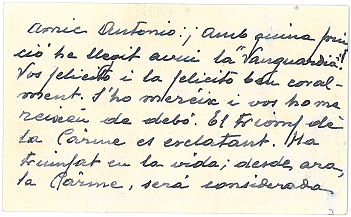 Amic Antonio: ¡Amb quina emi
ció he llegit avui la "Vanguardia"!
Vos felicito i la felicito ben coral-
ment. S'ho mereix i vos ho me
reixeu de debó. El triomf de
la Carme es esclatant. Ha
triumfat en la vida; desde ara,
la Carme, será considerada